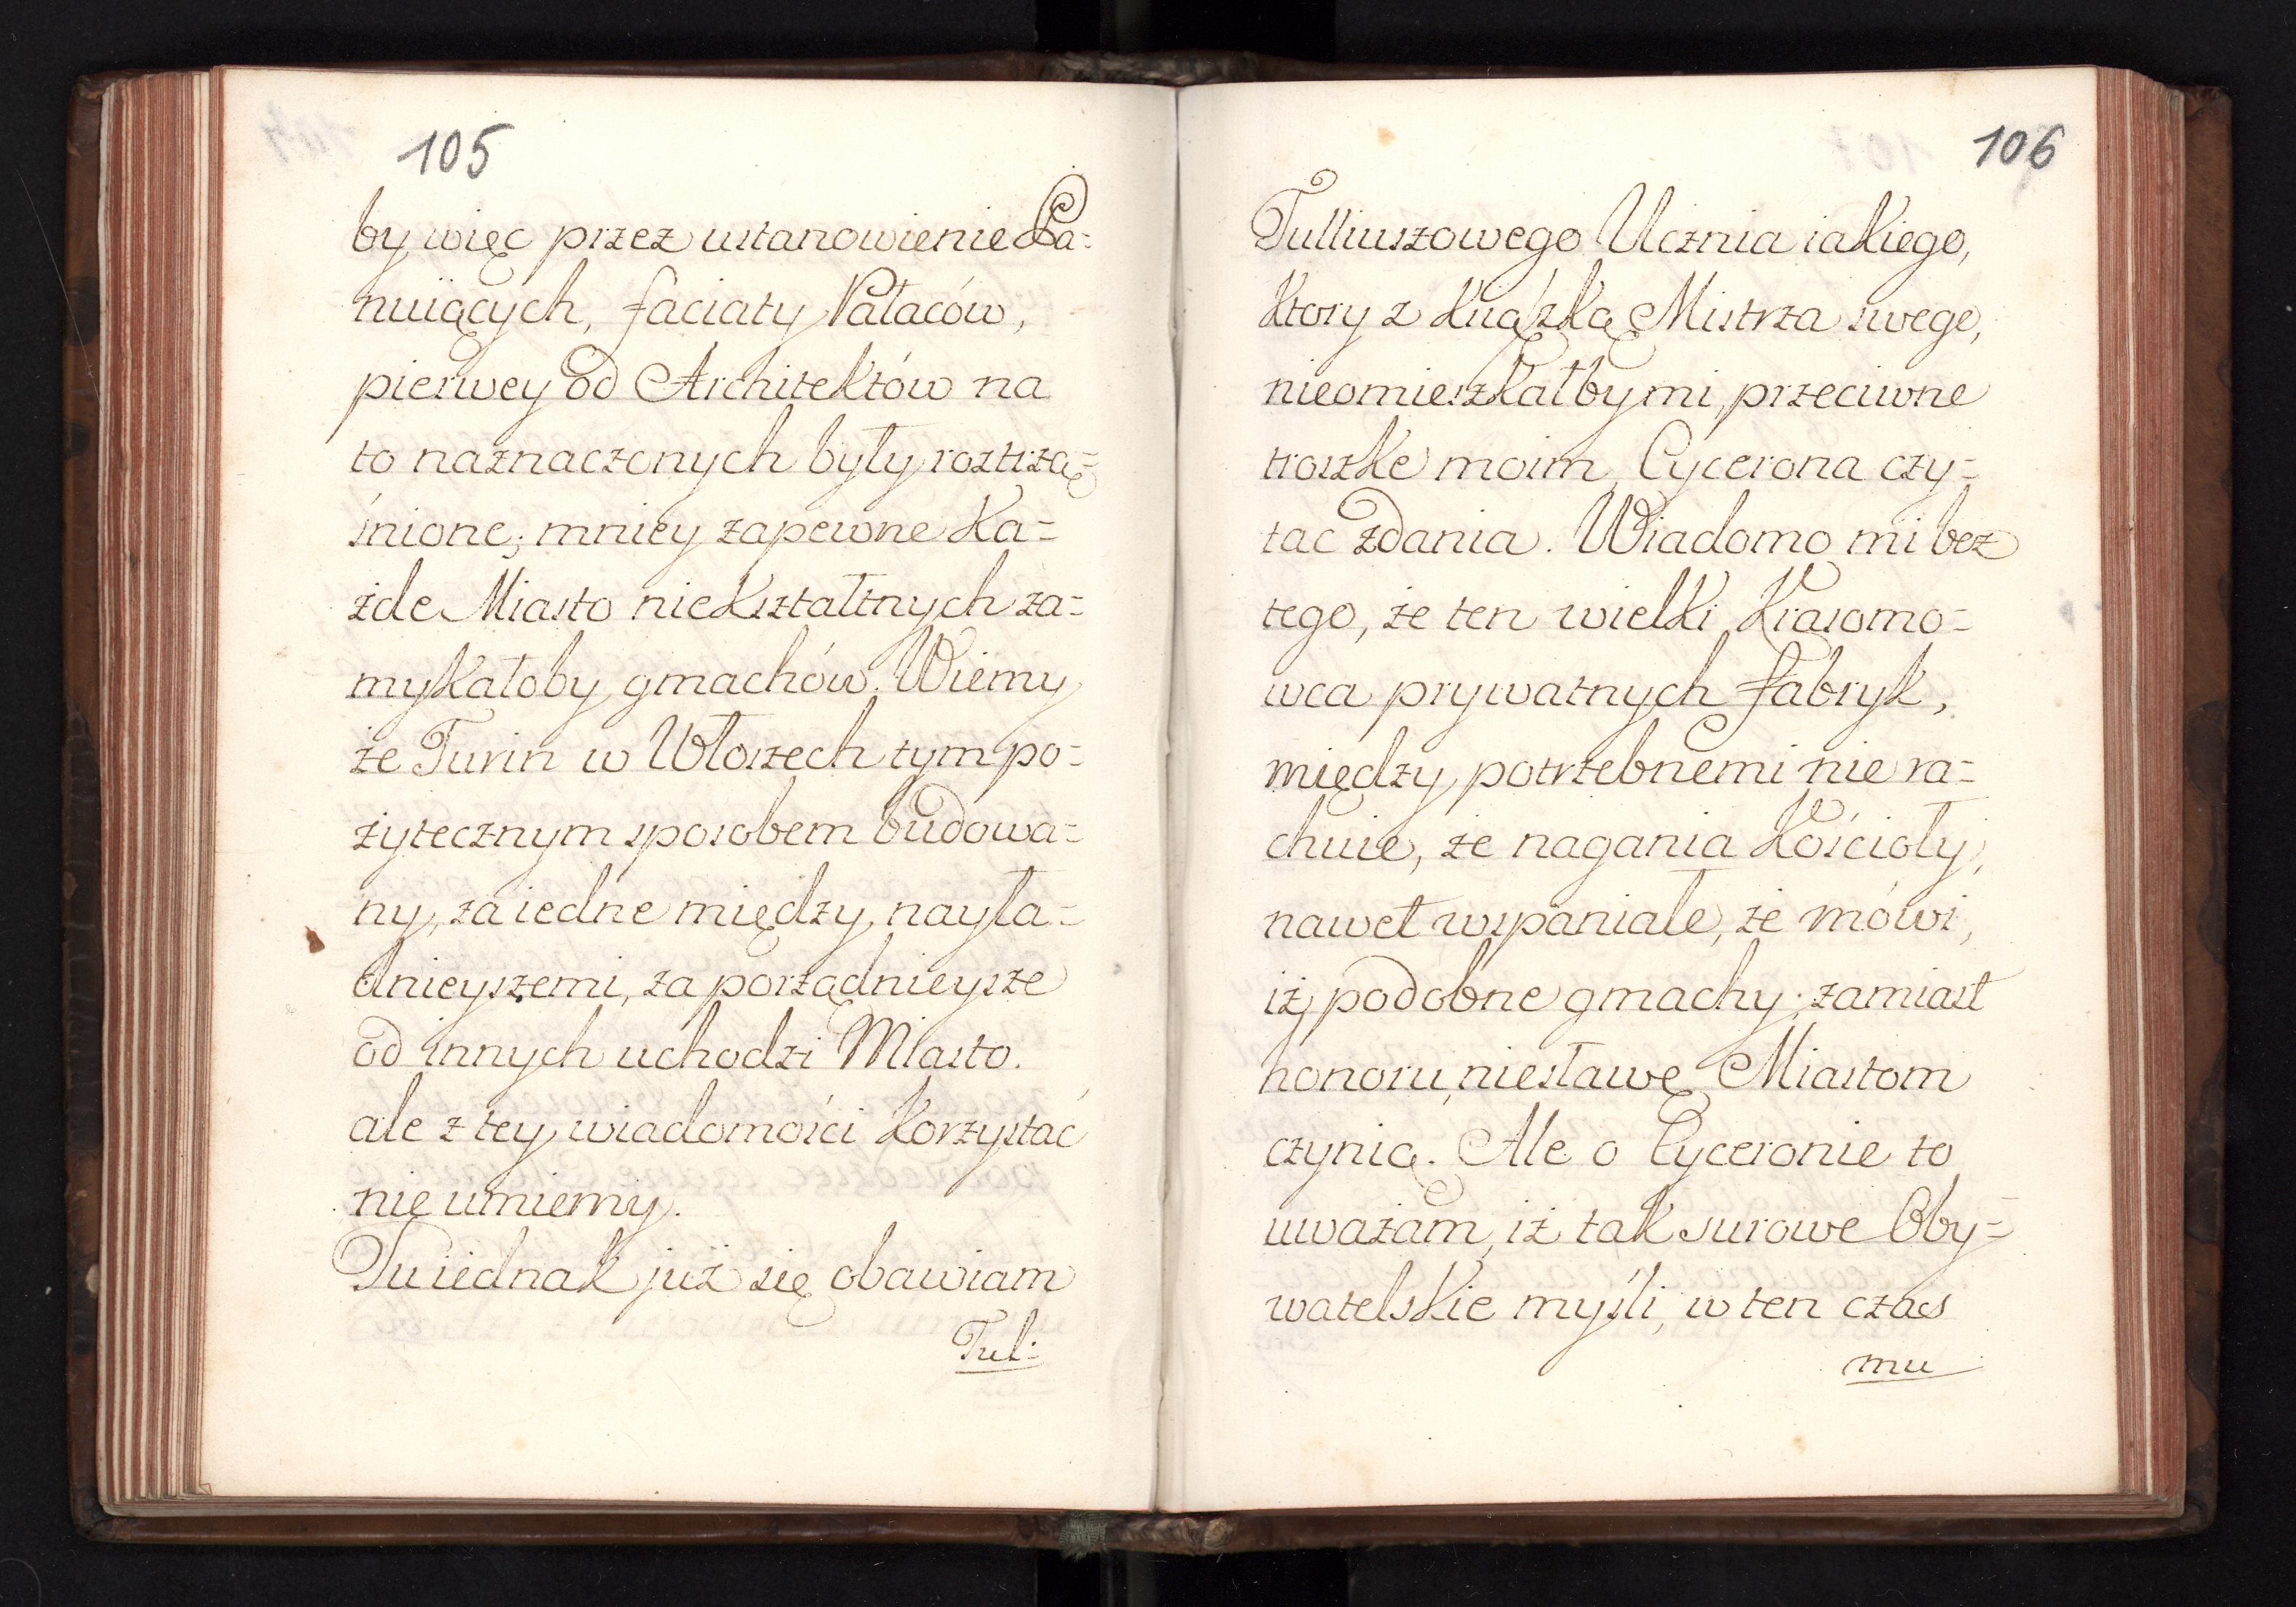 105
by więc przez ustanowienie Pa=
nuiących, faciaty Pałaców,
pierwey od Architektów na
to naznaczonych były roztrzą=
śnione; mniey zapewne Ka=
żde Miasto niekształtnych za=
mykałoby gmachów. Wiemy
że Turin w Włoszech tym po=
żytecznym sposobem budowa=
ny, za iedne między, nayła=
dnieyszemi, za porządnieysze
od innych uchodzi Miasto.
ale z tey wiadomości korzystać
nie umiemy.
Tu iednak już się obawiam
Tul=
106
Tulliuszowego Ucznia iakiego,
ktory z Książką Mistrza swego,
nieomieszkałby mi, przeciwne
troszke moim, Cycerona czy=
tac zdania. Wiadomo mi bez
tego, że ten wielki Krasomo=
wca prywatnych fabryk,
między potrzebnemi nie ra=
chuie, że nagania Kościoły,
nawet wspaniałe, że mówi,
iż podobne gmachy, zamiast
honoru, niesławę Miastom
czynią. Ale o Cyceronie to
uważam, iż tak surowe Oby=
watelskie myśli, w ten czas
mu